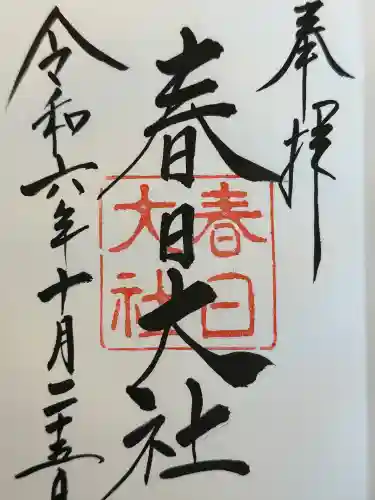 奉拝
春日大社
春日大社
令和六年十月二十五日